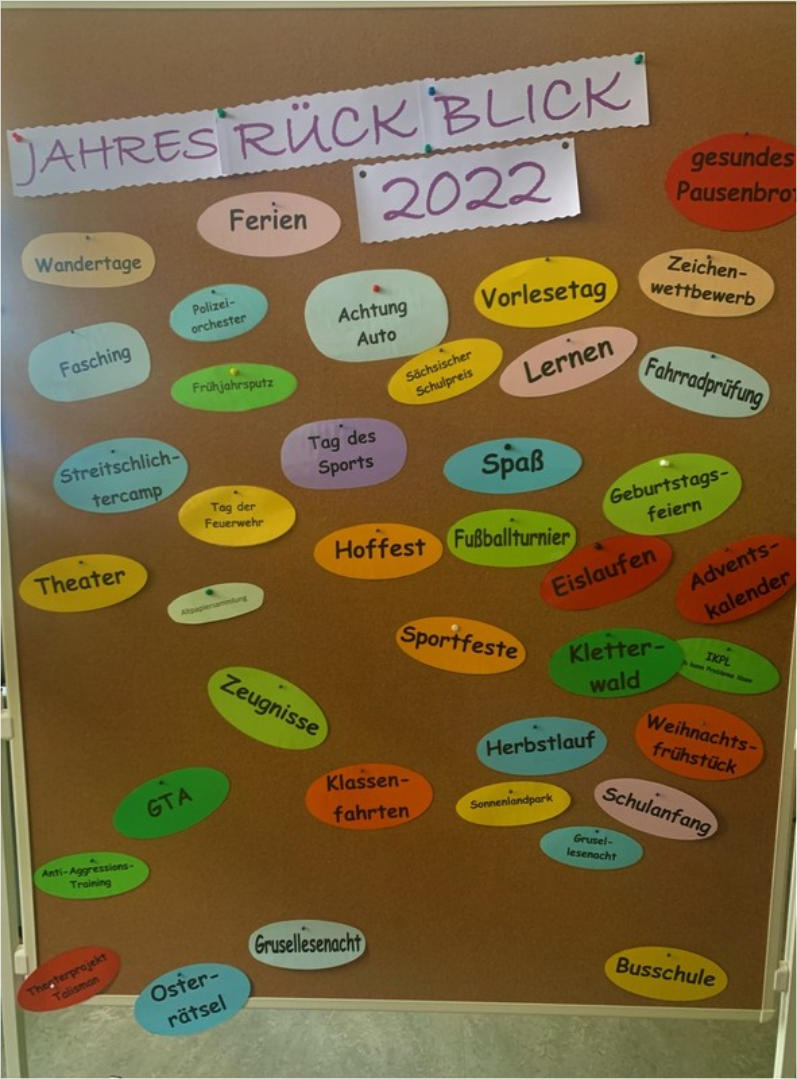 JAHRES RÜCK BLICK
2022
gesundes
Pausenbrot
Ferien
Wandertage
Zeichen-
wettbewerb
Vorlesetag
Polizei-
orchester
Achtung
Auto
Fasching
Frühjahrsputz
Sächsischer
Schulpreis
Lernen
Fahrradprüfung
Tag des
Sports
Streitschlich-
tercamp
Spaß
Geburtstags-
feiern
Tag der
Feuerwehr
Hoffest
Fußballturnier
Eislaufen
Advents-
kalender
Theater
Altpapiersammlung
Sportfeste
Kletter-
wald
IKPL
Zeugnisse
Herbstlauf
Weihnachts-
frühstück
GTA
Klassen-
fahrten
Sonnenlandpark
Schulanfang
Grusel-
lesenacht
Anti-Aggressions-
Training
Grusellesenacht
Busschule
Theaterprojekt
Talisman
Oster-
rätsel